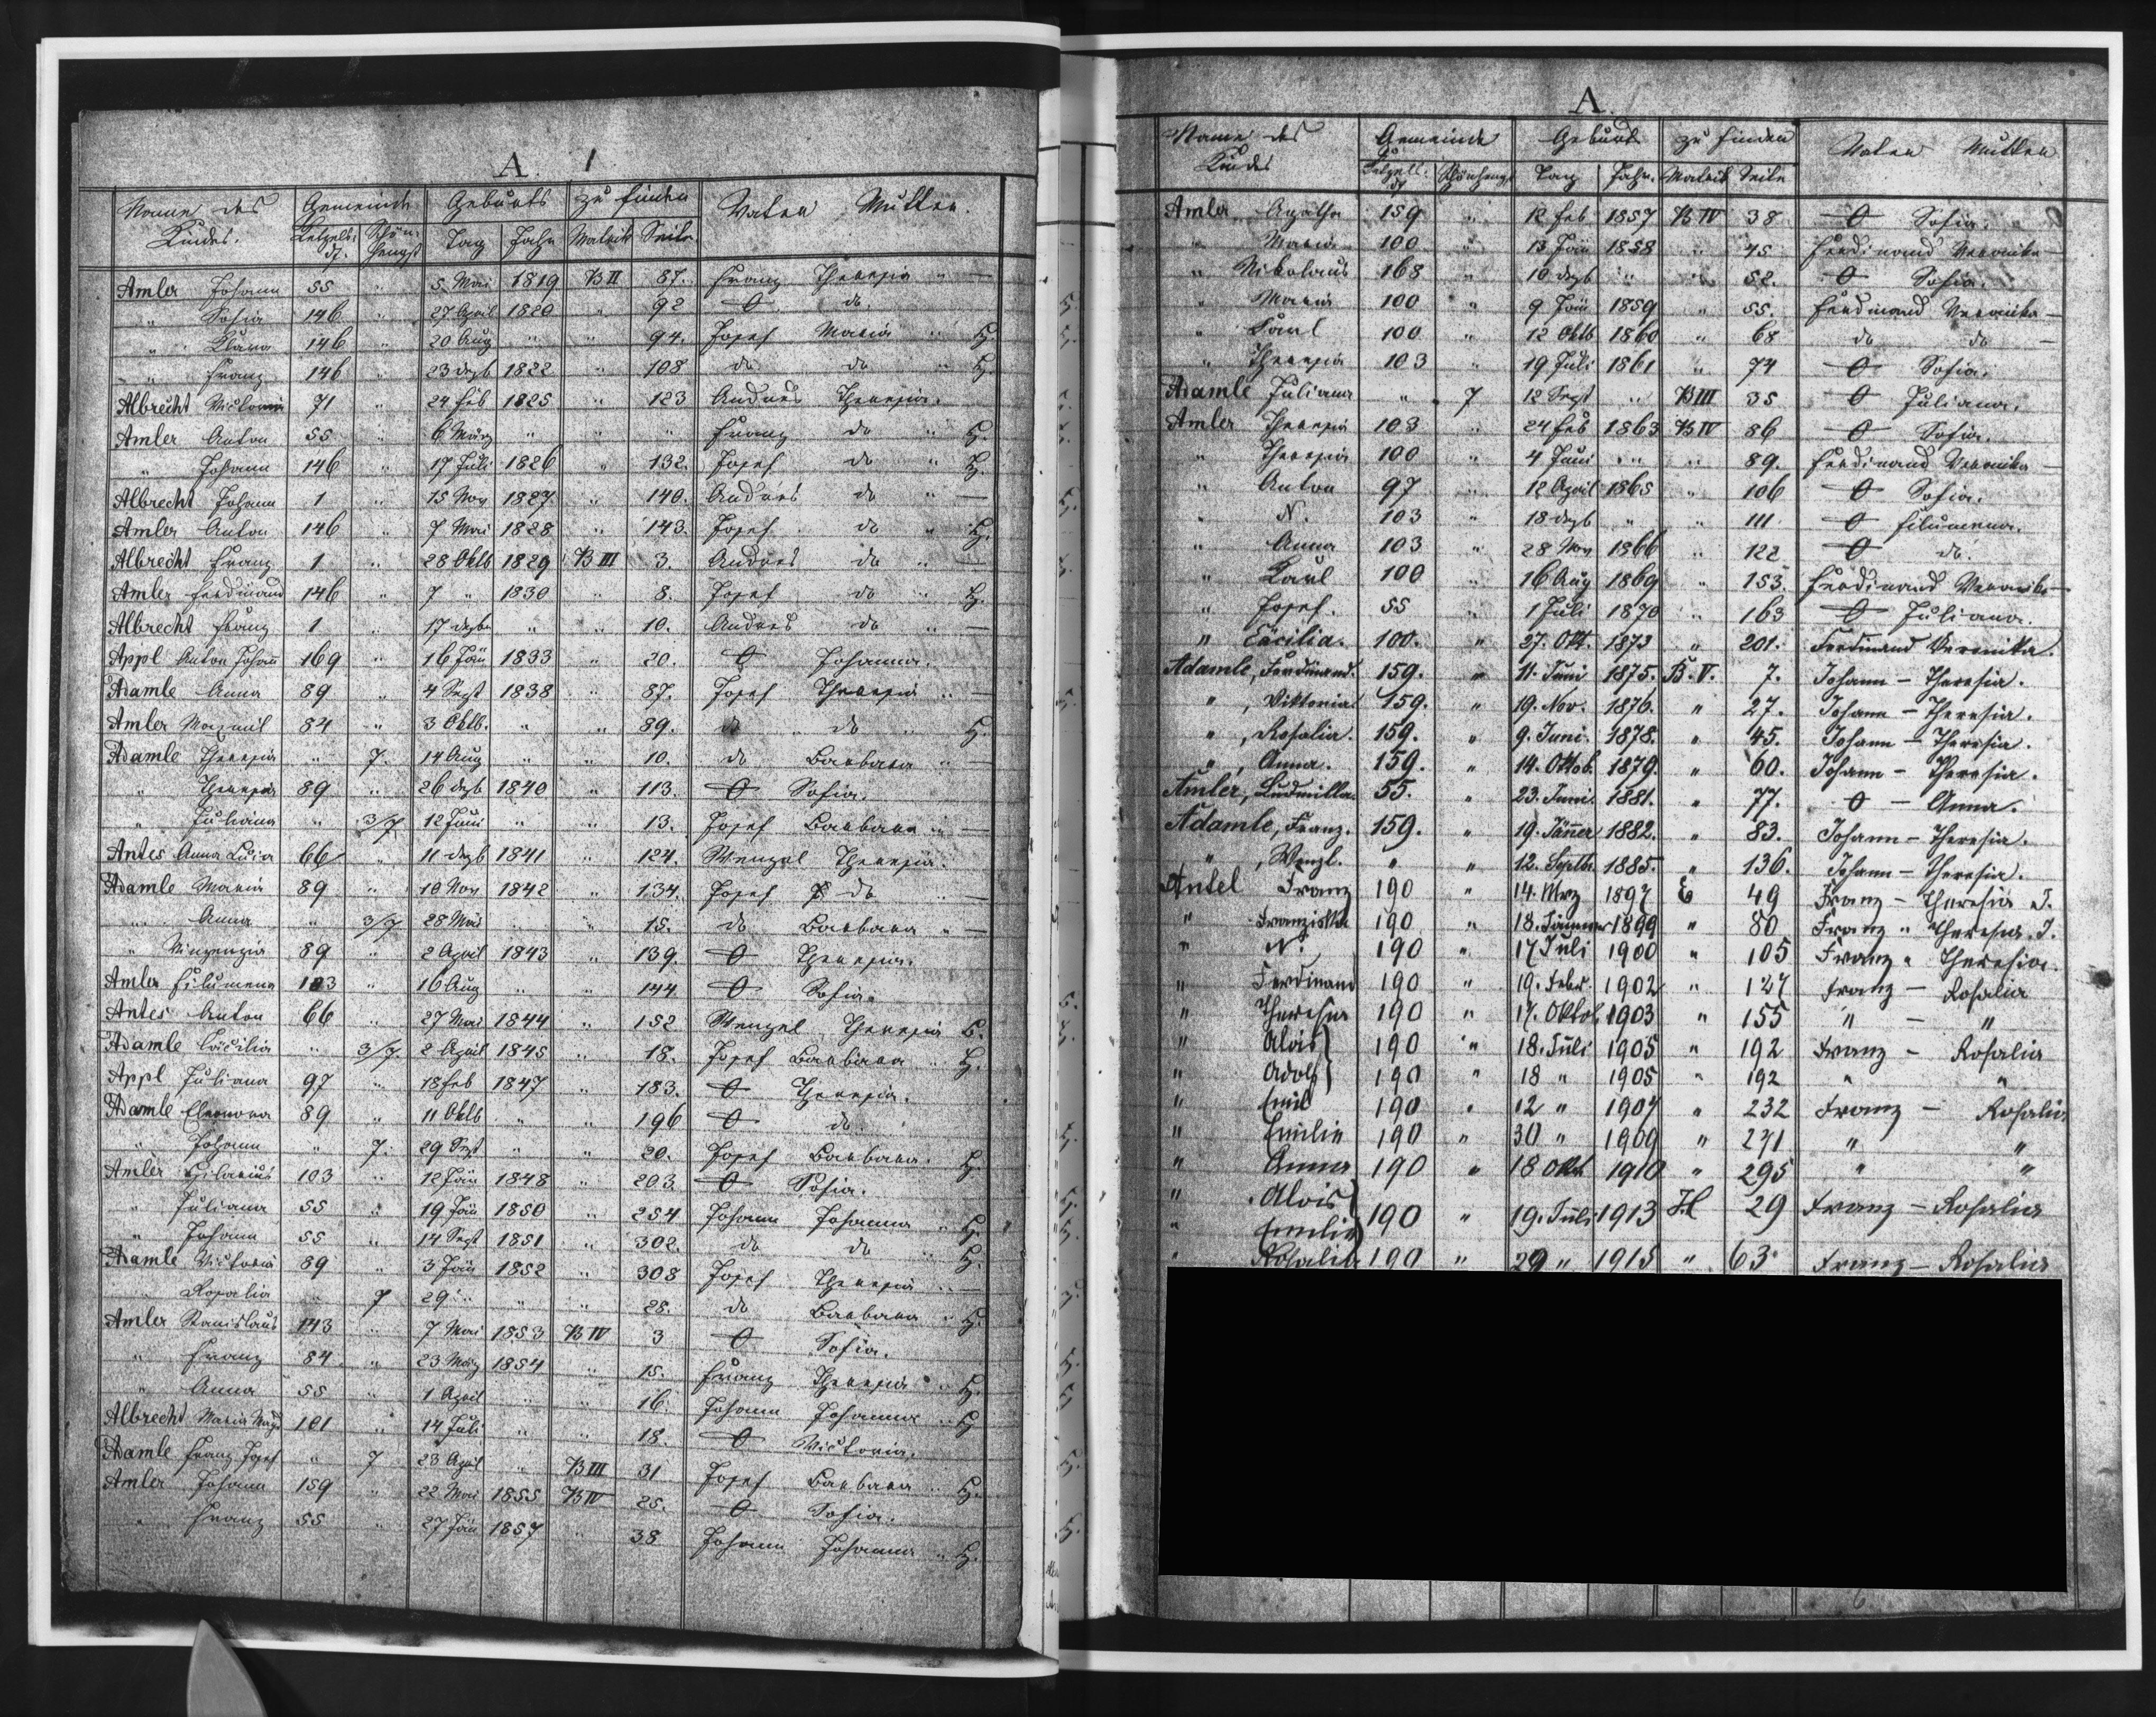 A. 1
Name des Kindes. Gemeinde Geburts zu finden Vater Mutter.
Letzelsdf. Schönhengst Tag Jahr Matrik Seite
Amler Johann 55 " 5 Mai 1819 B II 87. Franz Theresia " —
" Sofia 146 " 27 April 1820 " 92 O do
" Klara 146 " 20 Aug " " 94. Josef Maria " H.
" Franz 146 " 23 dezb 1822 " 108 do do " H.
Albrecht Victoria 71 " 24 Feb 1825 " 123 Andreas Theresia.
Amler Anton 55 " 6 März " " " Franz do " H.
" Johann 146 " 17 Juli 1826 " 132. Josef do " H.
Albrecht Johann 1 " 15 Nov 1827 " 140. Andreas do " —
Amler Anton 146 " 7 Mai 1828 " 143. Josef do " H.
Albrecht Franz 1 " 28 Oktb 1829 B III 3. Andreas do " —
Amler Ferdinand 146 " 7 " 1830 " 8. Josef do " H.
Albrecht Franz 1 " 17 dezbr " " 10. Andreas do " —
Appl Anton Johann 169 " 16 Jän 1833 " 20. O Johanna.
Adamle Anna 89 " 4 Sept 1838 " 87. Josef Theresia " —
Amler Maxmil 84 " 3 Oktb. " " 89. do " do " H.
Adamle Theresia " 7. 14 Aug " " 10. do Barbara " —
" Theresia 89 " 26 dezb 1840 " 113. O Sofia.
" Juliana " 3/7 12 Juni " " 13. Josef Barbara " —
Antes Anna Luzia 66 " 11 dezb 1841 " 124. Wenzel Theresia.
Adamle Maria 89 " 10 Nov 1842 " 134. Josef do " —
" Anna " 3/7 28 Mai " " 15. do Barbara " —
" Vinzenzia 89 " 2 April 1843 " 139. O Theresia.
Amler Filumena 103 " 16 Aug " " 144. O Sofia.
Antes Anton 66 " 27 Mai 1844 " 152 Wenzel Theresia H.
Adamle Cäcilia " 3/7 2 April 1845 " 18. Josef Barbara " H.
Appl Juliana 97 " 18 Feb 1847 " 183. O Theresia.
Adamle Eleonora 89 " 11 Oktb " " 196 O do.
" Johann " 7. 29 Sept " " 20. Josef Barbara. H.
Amler Hilarius 103 " 12 Jän 1848 " 203. O Sofia.
" Juliana 55 " 19 Jän 1850 " 254 Johann Johanna " H.
" Johann 55 " 14 Sept 1851 " 302. do do " H.
Adamle Victoria 89 " 3 Jän 1852 " 308 Josef Theresia " —
" Rosalia " 7 29 " " " 28. do Barbara " H.
Amler Stanislaus 143 " 7 Mai 1853 B IV 3 O Sofia.
" Franz 84 " 23 März 1854 " 15. Franz Theresia " H.
" Anna 55 " 1 April " " 16. Johann Johanna " H
Albrecht Maria Magd 101 " 14 Juli " " 18. O Victoria.
Adamle Franz Josef " 7 23 April " B III 31 Josef Barbara " H.
Amler Johann 159 " 22 Mai 1855 B IV 25. O Sofia.
" Franz 55 " 27 Jän 1857 " 38 Johann Johanna " H.
A.
Name des Kindes Gemeinde Geburts zu finden Vater Mutter
Letzelsdf Schönhengst Tag Jahr. Matrik Seite
Amler Agatha 159 " 12 Feb 1857 B IV 38 O Sofia.
" Maria 100 " 13 Jän 1858 " 45 Ferdinand Veronika —
" Nikolaus 168 " 10 dezb " " 52. O Sofia.
" Maria 100 " 9 Jän 1859 " 55. Ferdinand Veronika —
" Karl 100 " 12 Oktb 1860 " 68 do do —
" Theresia 103 " 19 Juli 1861 " 74 O Sofia.
Adamle Juliana " 7 12 Sept " B III 35 O Juliana.
Amler Theresia 103 " 24 Feb 1863 B IV 86 O Sofia.
" Theresia 100 " 4 Juni " " 89. Ferdinand Veronika —
" Anton 97 " 12 April 1865 " 106 O Sofia.
" N. 103 " 18 dezb " " 111 O Filumena.
" Anna 103 " 28 Nov 1866 " 122 O do.
" Karl 100 " 16 Aug 1869 " 153. Ferdinand Veronika —
" Josef. 55 " 1 Juli 1870 " 163 O Juliana.
" Cäcilia. 100. " 27. Okt. 1873 " 201. Ferdinand Veronika.
Adamle, Ferdinand. 159. " 11. Juni 1875. B. V. 7. Johann – Theresia.
" , Viktoria 159. " 19. Nov. 1876. " 27. Johann – Theresia.
" , Rosalia. 159. " 9. Juni. 1878. " 45. Johann – Theresia.
" , Anna. 159. " 14. Oktob. 1879. " 60. Johann – Theresia.
Amler, Ludmilla 55. " 23. Juni. 1881. " 77. O – Anna.
Adamle, Franz. 159. " 19. Jänner 1882. " 83. Johann – Theresia.
" , Wenzl. " " 12. Septb. 1885. " 136. Johann – Theresia.
Antel Franz 190 " 14. Mrz 1897 E 49 Franz – Theresia J.
" Franziska 190 " 18. Jänner 1899 " 80 Franz " Theresia. J.
" N. 190 " 17 Juli 1900 " 105 Franz " Theresia.
" Ferdinand 190 " 19. Febr. 1902 " 127 Franz – Rosalia
" Theresia 190 " 17. Oktob 1903 " 155 " – "
" Alois } 190 " 18. Juli 1905 " 192 Franz – Rosalia
" Adolf } 190 " 18 " 1905 " 192 " "
" Emil 190 " 12 " 1907 " 232 Franz – Rosalia
" Emilie 190 " 30 " 1909 " 271 " "
" Anna 190 " 18 Okt 1910 " 295 " "
" Alois }
" Emilie } 190 " 19. Juli 1913 H 29 Franz – Rosalia
" Rosalia 190 " 29 " 1915 " 63 Franz – Rosalia